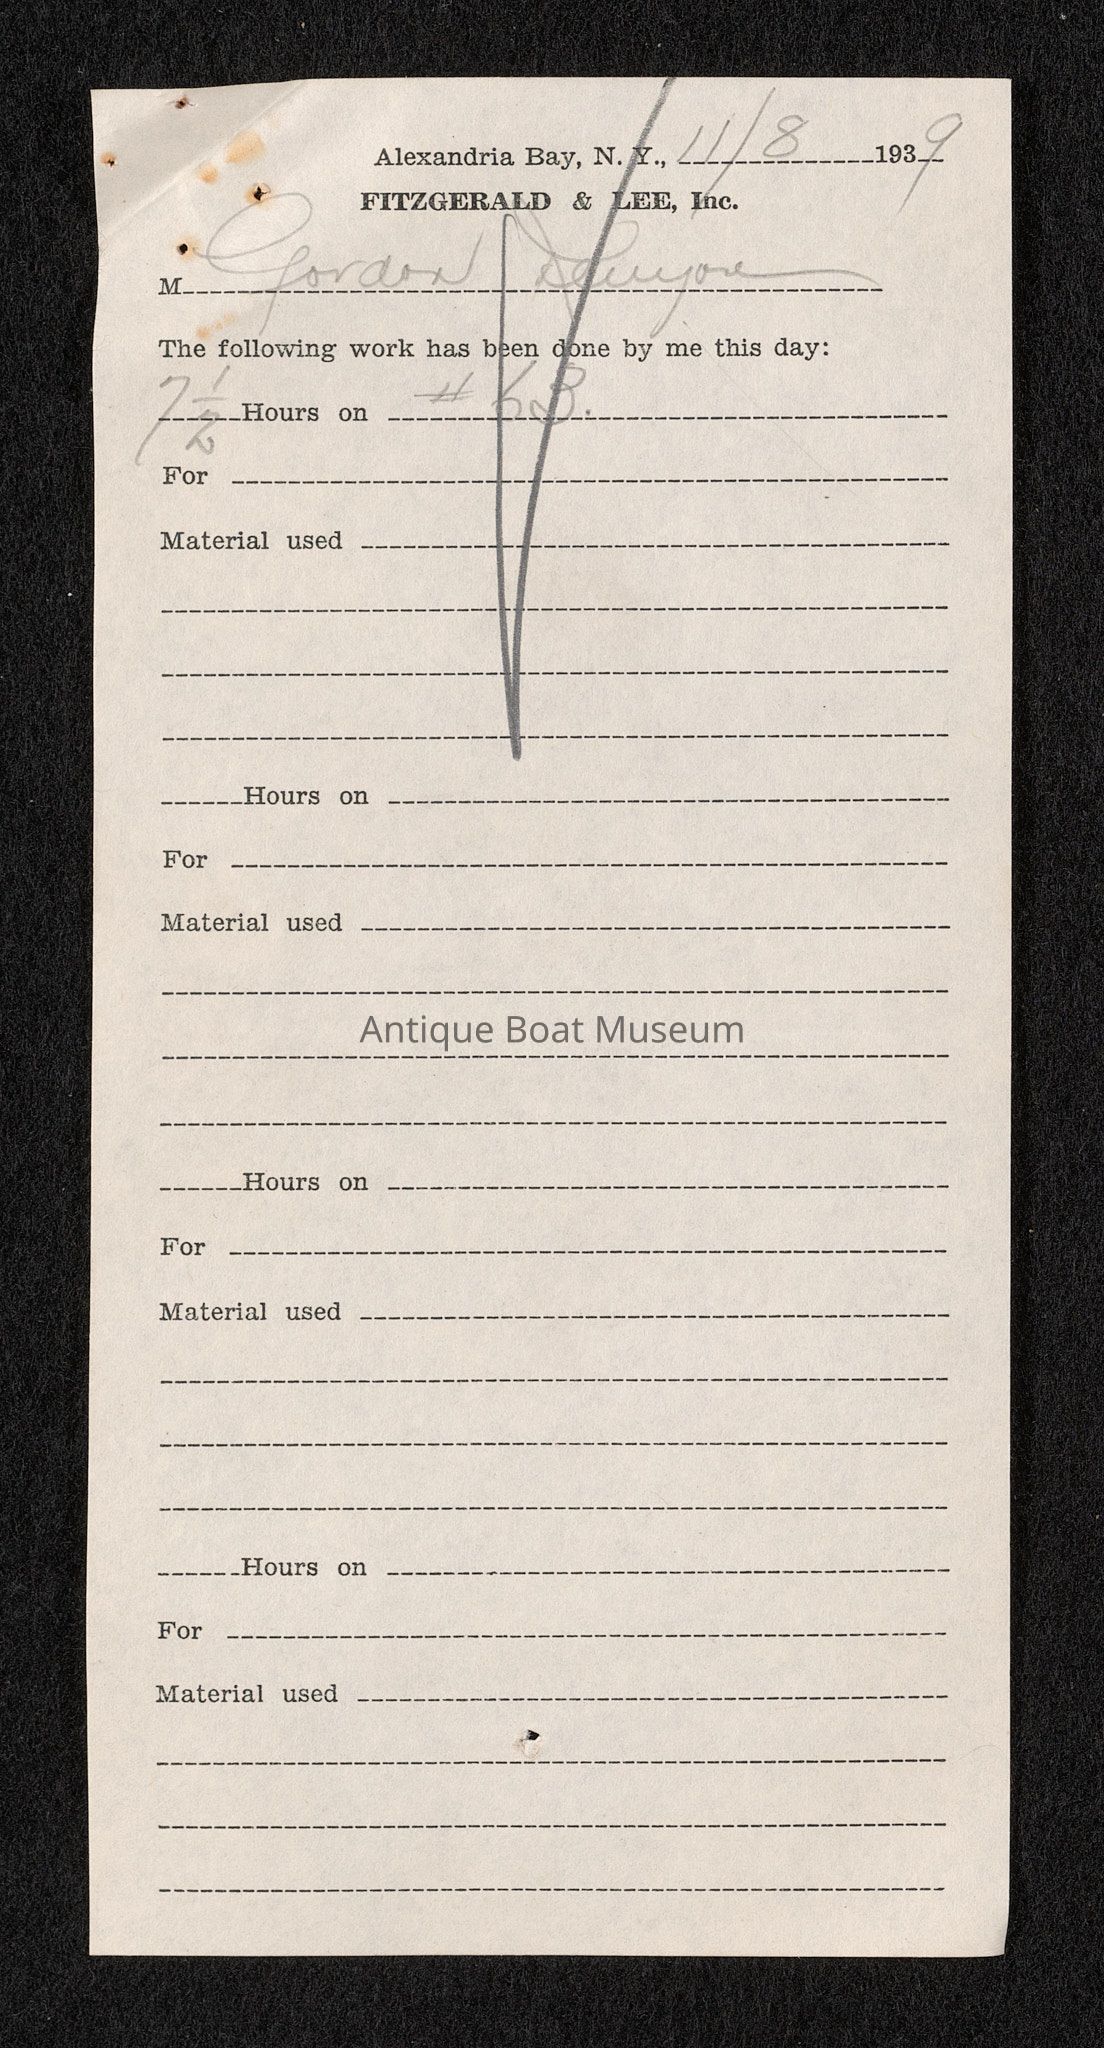 Alexandria Bay, N. Y., 11/8 1939
FITZGERALD & LEE, Inc.
M Gordon
The following work has been done by me this day:
7 1/2 Hours on # 63.
For
Material used
Hours on
For
Material used
Antique Boat Museum
Hours on
For
Material used
Hours on
For
Material used